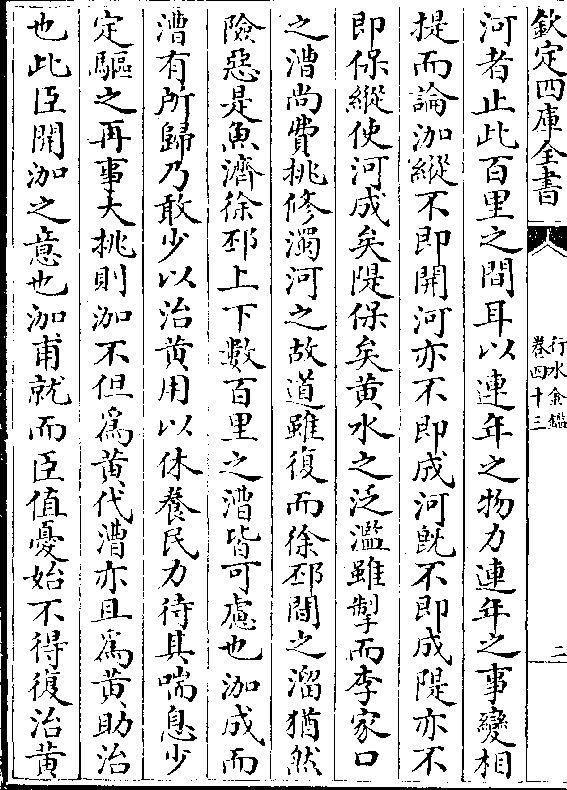 欽定四庫全書
行水金鑑
卷四十三
二
河者止此百里之間耳以連年之物力連年之事變相
提而論泇縱不即開河亦不即成河既不即成隄亦不
即保縱使河成矣隄保矣黃水之泛濫雖掣而李家口
之漕尚費挑修濁河之故道雖復而徐邳間之溜猶然
險惡是魚濟徐邳上下數百里之漕皆可慮也泇成而
漕有所歸乃敢少以治黃用以休養民力待其喘息少
定驅之再事大挑則泇不但為黃代漕亦且為黃助治
也此臣開泇之意也泇甫就而臣值憂始不得復治黃